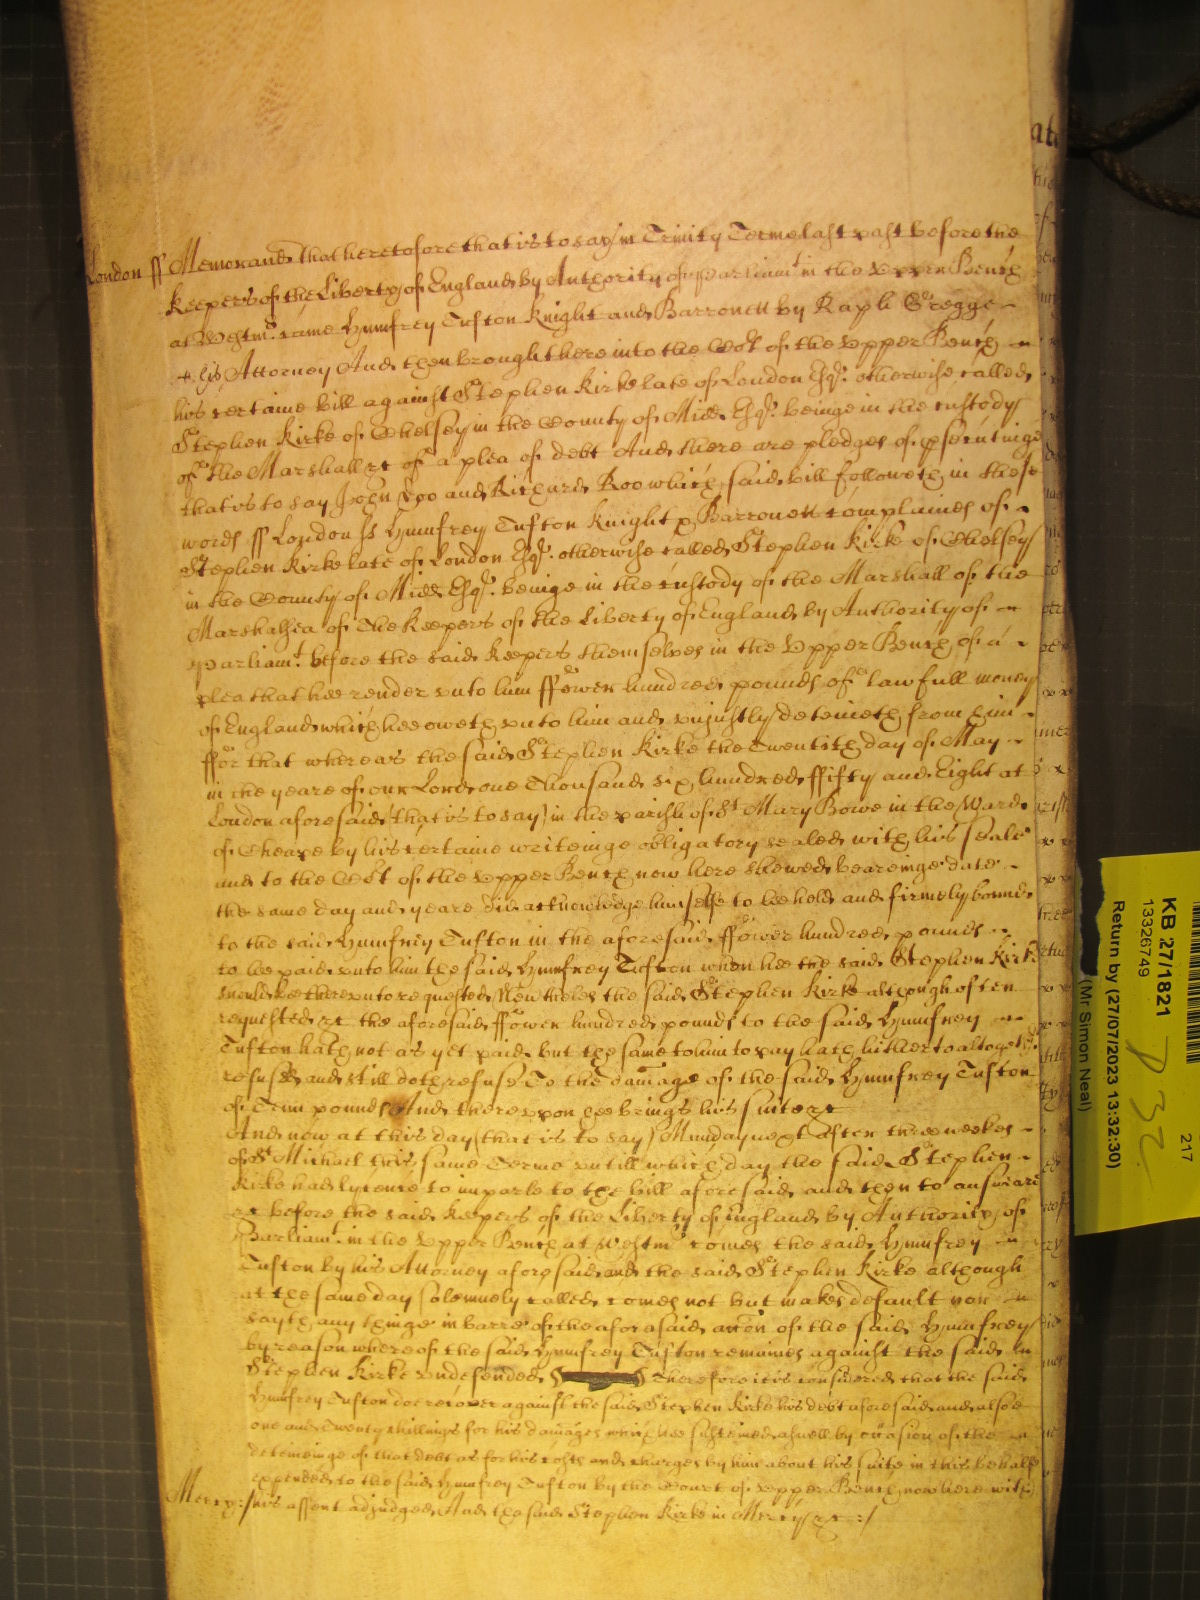 London ss Memorand that heretofore that is to say in Trinity Terme last past before the
Keepers of the Liberty of England by Authority of Parliamt in the Upper Bench
at Westmr came Humfrey Tufton Knight and Barronett by Raph Gregge
his Attorney And then brought here into the Cort of the Upper Bench
his certaine bill against Stephen Kirke late of London Esqr. otherwise called
Stephen Kirke of Chelsey in the County of Midd Esqr. beinge in the custody
of the Marshall &c of a plea of debt And there are pledges of prsecutinge
that is to say John Doo and Richard Roo which said bill followeth in these
words ss London ss Humfrey Tufton Knight & Barronett complaines of
Stephen Kirke late of London Esqr. otherwise called Stephen Kirke of Chelsey
in the County of Midd Esqr. beinge in the custody of the Marshall of the
Marshalsea of The Keepers of the Liberty of England by Authority of
Parliamt. before the said Keepers themselves in the Upper Bench of a
plea that hee render unto him ffower hundred pounds of lawfull money
of England which hee oweth unto him and unjustly deteineth from him
ffor that whereas the said Stephen Kirke the Twentith day of May
in the yeare of our Lord one Thousand six hundred ffifty and Eight at
London aforesaid (that is to say) in the parish of St Mary Bowe in the Ward
of Cheape by his certaine writeinge obligatory sealed with his seale
and to the Cort of the Upper Bench now here shewed beareinge date
the same day and yeare did acknowledge himselfe to bee held and firmely bound
to the said Humfrey Tufton in the aforesaid ffower hundred pounds
to bee paid unto him the said Humfrey Tufton when hee the said Stephen Kirke
should bee thereunto requested Neverthelesse the said Stephen Kirke although often
requested &c the aforesaid ffower hundred pounds to the said Humfrey
Tufton hath not as yet paid but the same to him to pay hath hitherto altogethr.
refused and still doth refuse To the damage of the said Humfrey Tufton
of Tenn pounds And thereupon hee brings his suite &c
And now at this day (that is to say) Munday next after three weekes
of St Michael this same Terme untill which day the said Stephen
Kirke had lycence to imparle to the bill aforesaid and then to answeare
&c before the said Keepers of the Liberty of England by Authority of
Parliamt. in the Upper Bench at Westmr comes the said Humfrey
Tufton by his Attorney aforesaid and the said Stephen Kirke although
at the same day solemnely called comes not but makes default nor
sayth any thinge in barre of the aforesaid accon of the said Humfrey
by reason whereof the said Humfrey Tufton remaines against the said
Stephen Kirke undefended Therefore it is considered that the said
Humfrey Tufton doe recover against the said Stephen Kirke his debt aforesaid and alsoe
one and Twenty shillings for his damages which hee susteined aswell by occasion of the
deteineinge of that debt as for his costs and charges by him about his suite in this behalfe
expended to the said Humfrey Tufton by the Court of Upper Bench now here with
Mercy :/ his assent adjudged And the said Stephen Kirke in Mercy &c :/
KB 27/1821
13326749
Return by (27/07/2023 13:32:30)
(Mr Simon Neal)
217